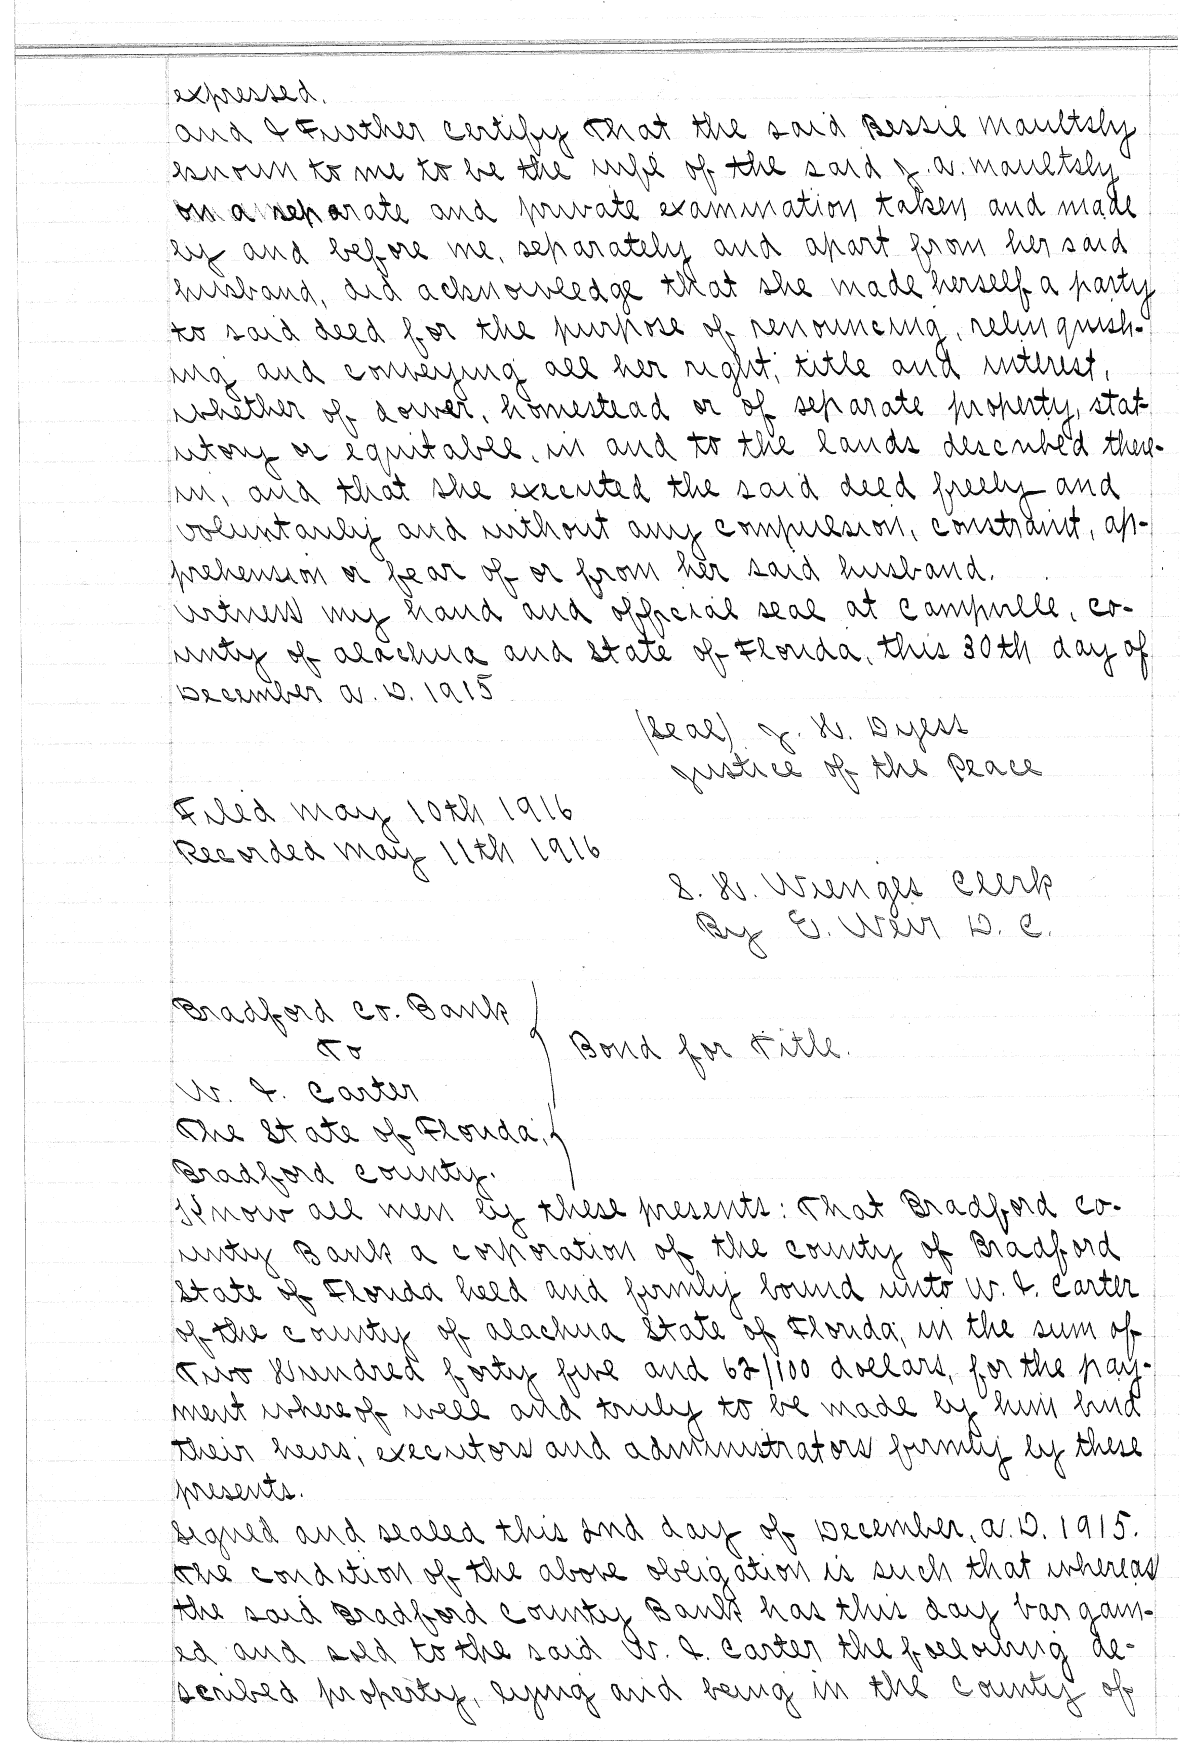 expressed.
And I Further Certify That the said Bessie Maultsby
known to me to be the wife of the said J. A. Maultsby
on a separate and private examination taken and made
by and before me, separately and apart from her said
husband, did acknowledge that she made herself a party
to said deed for the purpose of renouncing, relinquish-
ing and conveying all her right, title and interest,
whether of dower, homestead or of separate property, stat-
utory or equitable, in and to the lands described there-
in, and that she executed the said deed freely and
voluntarily and without any compulsion, constraint, ap-
prehension or fear of or from her said husband.
Witness my hand and official seal at Campville, Co-
unty of Alachua and State of Florida, this 30th day of
December A. D. 1915
(Seal) J. H. Dyess
Justice of the Peace
Filed May 10th 1916
Recorded May 11th 1916
S. H. Wienges Clerk
By E. Weir D. C.
Bradford Co. Bank
To
Bond for Title.
W. I. Carter
The State of Florida,
Bradford County.
Know all men by these presents: That Bradford Co-
unty Bank a corporation of the County of Bradford
State of Florida held and firmly bound unto W. I. Carter
of the County of Alachua State of Florida, in the sum of
Two Hundred forty five and 62/100 dollars, for the pay-
ment whereof well and truly to be made by him bind
their heirs, executors and administrators firmly by these
presents.
Signed and sealed this 2nd day of December, A. D. 1915.
The condition of the above obligation is such that whereas
the said Bradford County Bank has this day bargain-
ed and sold to the said W. I. Carter the following de-
scribed property, lying and being in the County of